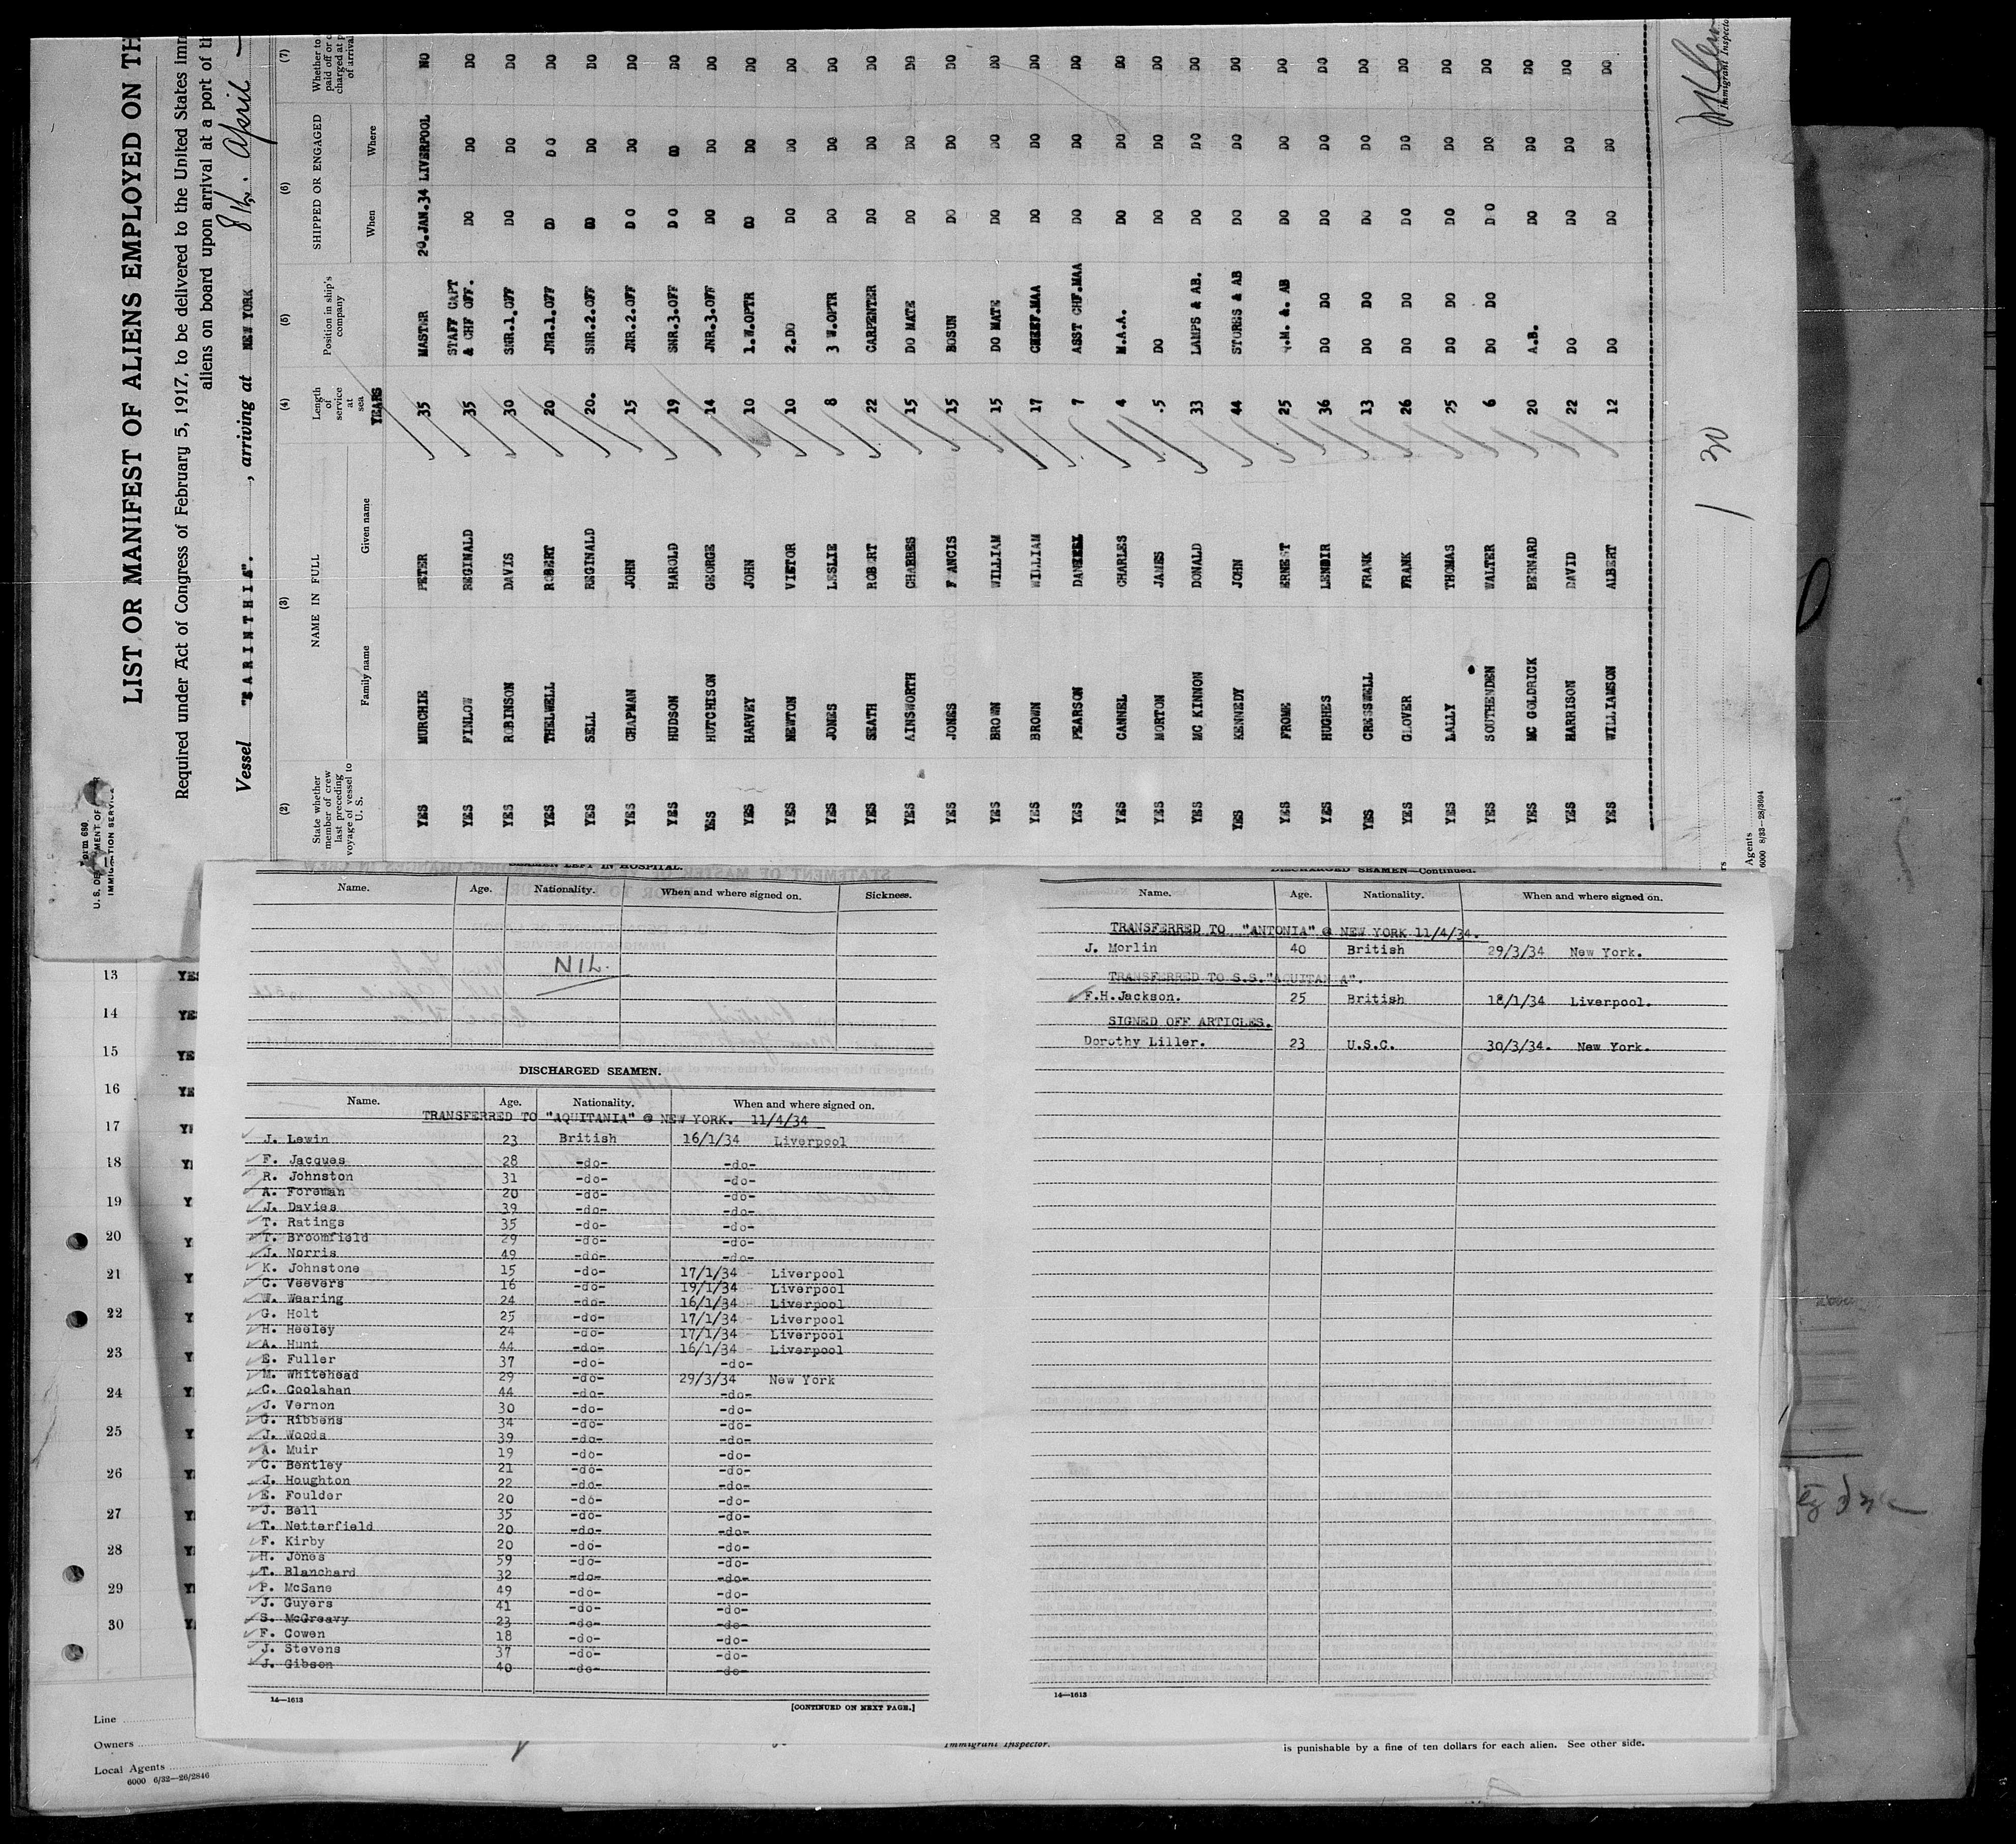 Form 680
U. S. DE MENT OF
IMMIGRATION SERVICE
LIST OR MANIFEST OF ALIENS EMPLOYED ON TH
Required under Act of Congress of February 5, 1917, to be delivered to the United States Imm
aliens on board upon arrival at a port of th
Vessel , arriving at NEW YORK 8th. April
(2) (3) (4) (5) (6) (7)
State whether member of crew last preceding voyage of vessel to U. S.
NAME IN FULL
Family name Given name
Length of service at sea
YEARS
Position in ship's company
SHIPPED OR ENGAGED
When Where
Whether to paid off or charged at p of arrival
YES MURCHIE PETER 35 MASTER 20.JAN.34 LIVERPOOL NO
YES FINLOW REGINALD 35 STAFF CAPT & CHF OFF. DO DO DO
YES ROBINSON DAVIS 30 SNR.1.OFF DO DO DO
YES THELWELL ROBERT 20 JNR.1.OFF DO DO DO
YES SELL REGINALD 20. SNR.2.OFF DO DO DO
YES CHAPMAN JOHN 15 JNR.2.OFF DO DO DO
YES HUDSON HAROLD 19 SNR.3.OFF DO DO DO
YES HUTCHISON GEORGE 14 JNR.3.OFF DO DO DO
YES HARVEY JOHN 10 1.W.OPTR DO DO DO
YES NEWTON VICTOR 10 2.DO DO DO DO
YES JONES LESLIE 8 3 W.OPTR DO DO DO
YES SEATH ROBERT 22 CARPENTER DO DO DO
YES AINSWORTH 15 DO MATE DO DO DO
YES JONES F ANCIS 15 BOSUN DO DO DO
YES BROWN WILLIAM 15 DO MATE DO DO DO
YES BROWN WILLIAM 17 CHEEF.MAA DO DO DO
YES PEARSON DANIEL 7 ASST CHF.MAA DO DO DO
YES CANNEL CHARLES 4 M.A.A. DO DO DO
YES MORTON JAMES .5 DO DO DO DO
YES MC KINNON DONALD 33 LAMPS & AB. DO DO DO
YES KENNEDY JOHN 44 STORES & AB DO DO DO
YES FROME ERNEST 25 Q.M. &. AB DO DO DO
YES HUGHES LENDIR 36 DO DO DO DO DO
YES CRESSWELL FRANK 13 DO DO DO DO DO
YES GLOVER FRANK 26 DO DO DO DO DO
YES LALLY THOMAS 25 DO DO DO DO DO
YES SOUTHENDEN WALTER 6 DO DO DO DO DO
YES MC GOLDRICK BERNARD 20 A.B. DO DO DO
YES HARRISON DAVID 22 DO DO DO DO
YES WILLIAMSON ALBERT 12 DO DO DO DO
rs
Agents
6000 8/33—28/3694
1 30
Immigrant Inspector
13 YES
14 YE
15 YE
16 YE
17 YE
18 YE
19 Y
20 Y
21 Y
22 Y
23 Y
24 Y
25 Y
26 Y
27 Y
28 Y
29 Y
30 Y
SEAMEN LEFT IN HOSPITAL.
Name. Age. Nationality. When and where signed on. Sickness.
NIL.
DISCHARGED SEAMEN.
Name. Age. Nationality. When and where signed on.
TRANSFERRED TO "AQUITANIA" @ NEW YORK. 11/4/34
J. Lewin 23 British 16/1/34 Liverpool
F. Jacques 28 -do- -do-
R. Johnston 31 -do- -do-
A. Foreman 20 -do- -do-
J. Davies 39 -do- -do-
T. Ratings 35 -do- -do-
T. Broomfield 29 -do- -do-
J. Norris 49 -do- -do-
K. Johnstone 15 -do- 17/1/34 Liverpool
C. Veevers 16 -do- 19/1/34 Liverpool
W. Wearing 24 -do- 16/1/34 Liverpool
G. Holt 25 -do- 17/1/34 Liverpool
H. Heeley 24 -do- 17/1/34 Liverpool
A. Hunt 44 -do- 16/1/34 Liverpool
E. Fuller 37 -do- -do-
M. Whitehead 29 -do- 29/3/34 New York
C. Coolahan 44 -do- -do-
J. Vernon 30 -do- -do-
G. Ribbens 34 -do- -do-
J. Woods 39 -do- -do-
A. Muir 19 -do- -do-
C. Bentley 21 -do- -do-
J. Houghton 22 -do- -do-
E. Foulder 20 -do- -do-
J. Bell 35 -do- -do-
T. Netterfield 20 -do- -do-
F. Kirby 20 -do- -do-
H. Jones 59 -do- -do-
T. Blanchard 32 -do- -do-
P. McSane 49 -do- -do-
J. Guyers 41 -do- -do-
S. McGreavy 23 -do- -do-
F. Cowen 18 -do- -do-
J. Stevens 37 -do- -do-
J. Gibson 40 -do- -do-
14—1613
[CONTINUED ON NEXT PAGE.]
DISCHARGED SEAMEN—Continued.
Name. Age. Nationality. When and where signed on.
TRANSFERRED TO "ANTONIA" @ NEW YORK 11/4/34.
J. Morlin 40 British 29/3/34 New York.
TRANSFERRED TO S.S."AQUITANIA".
F.H.Jackson. 25 British 18/1/34 Liverpool.
SIGNED OFF ARTICLES.
Dorothy Liller. 23 U.S.C. 30/3/34. New York.
14—1613
Line
Owners
Local Agents
6000 6/32—26/2846
Immigrant Inspector.
is punishable by a fine of ten dollars for each alien. See other side.